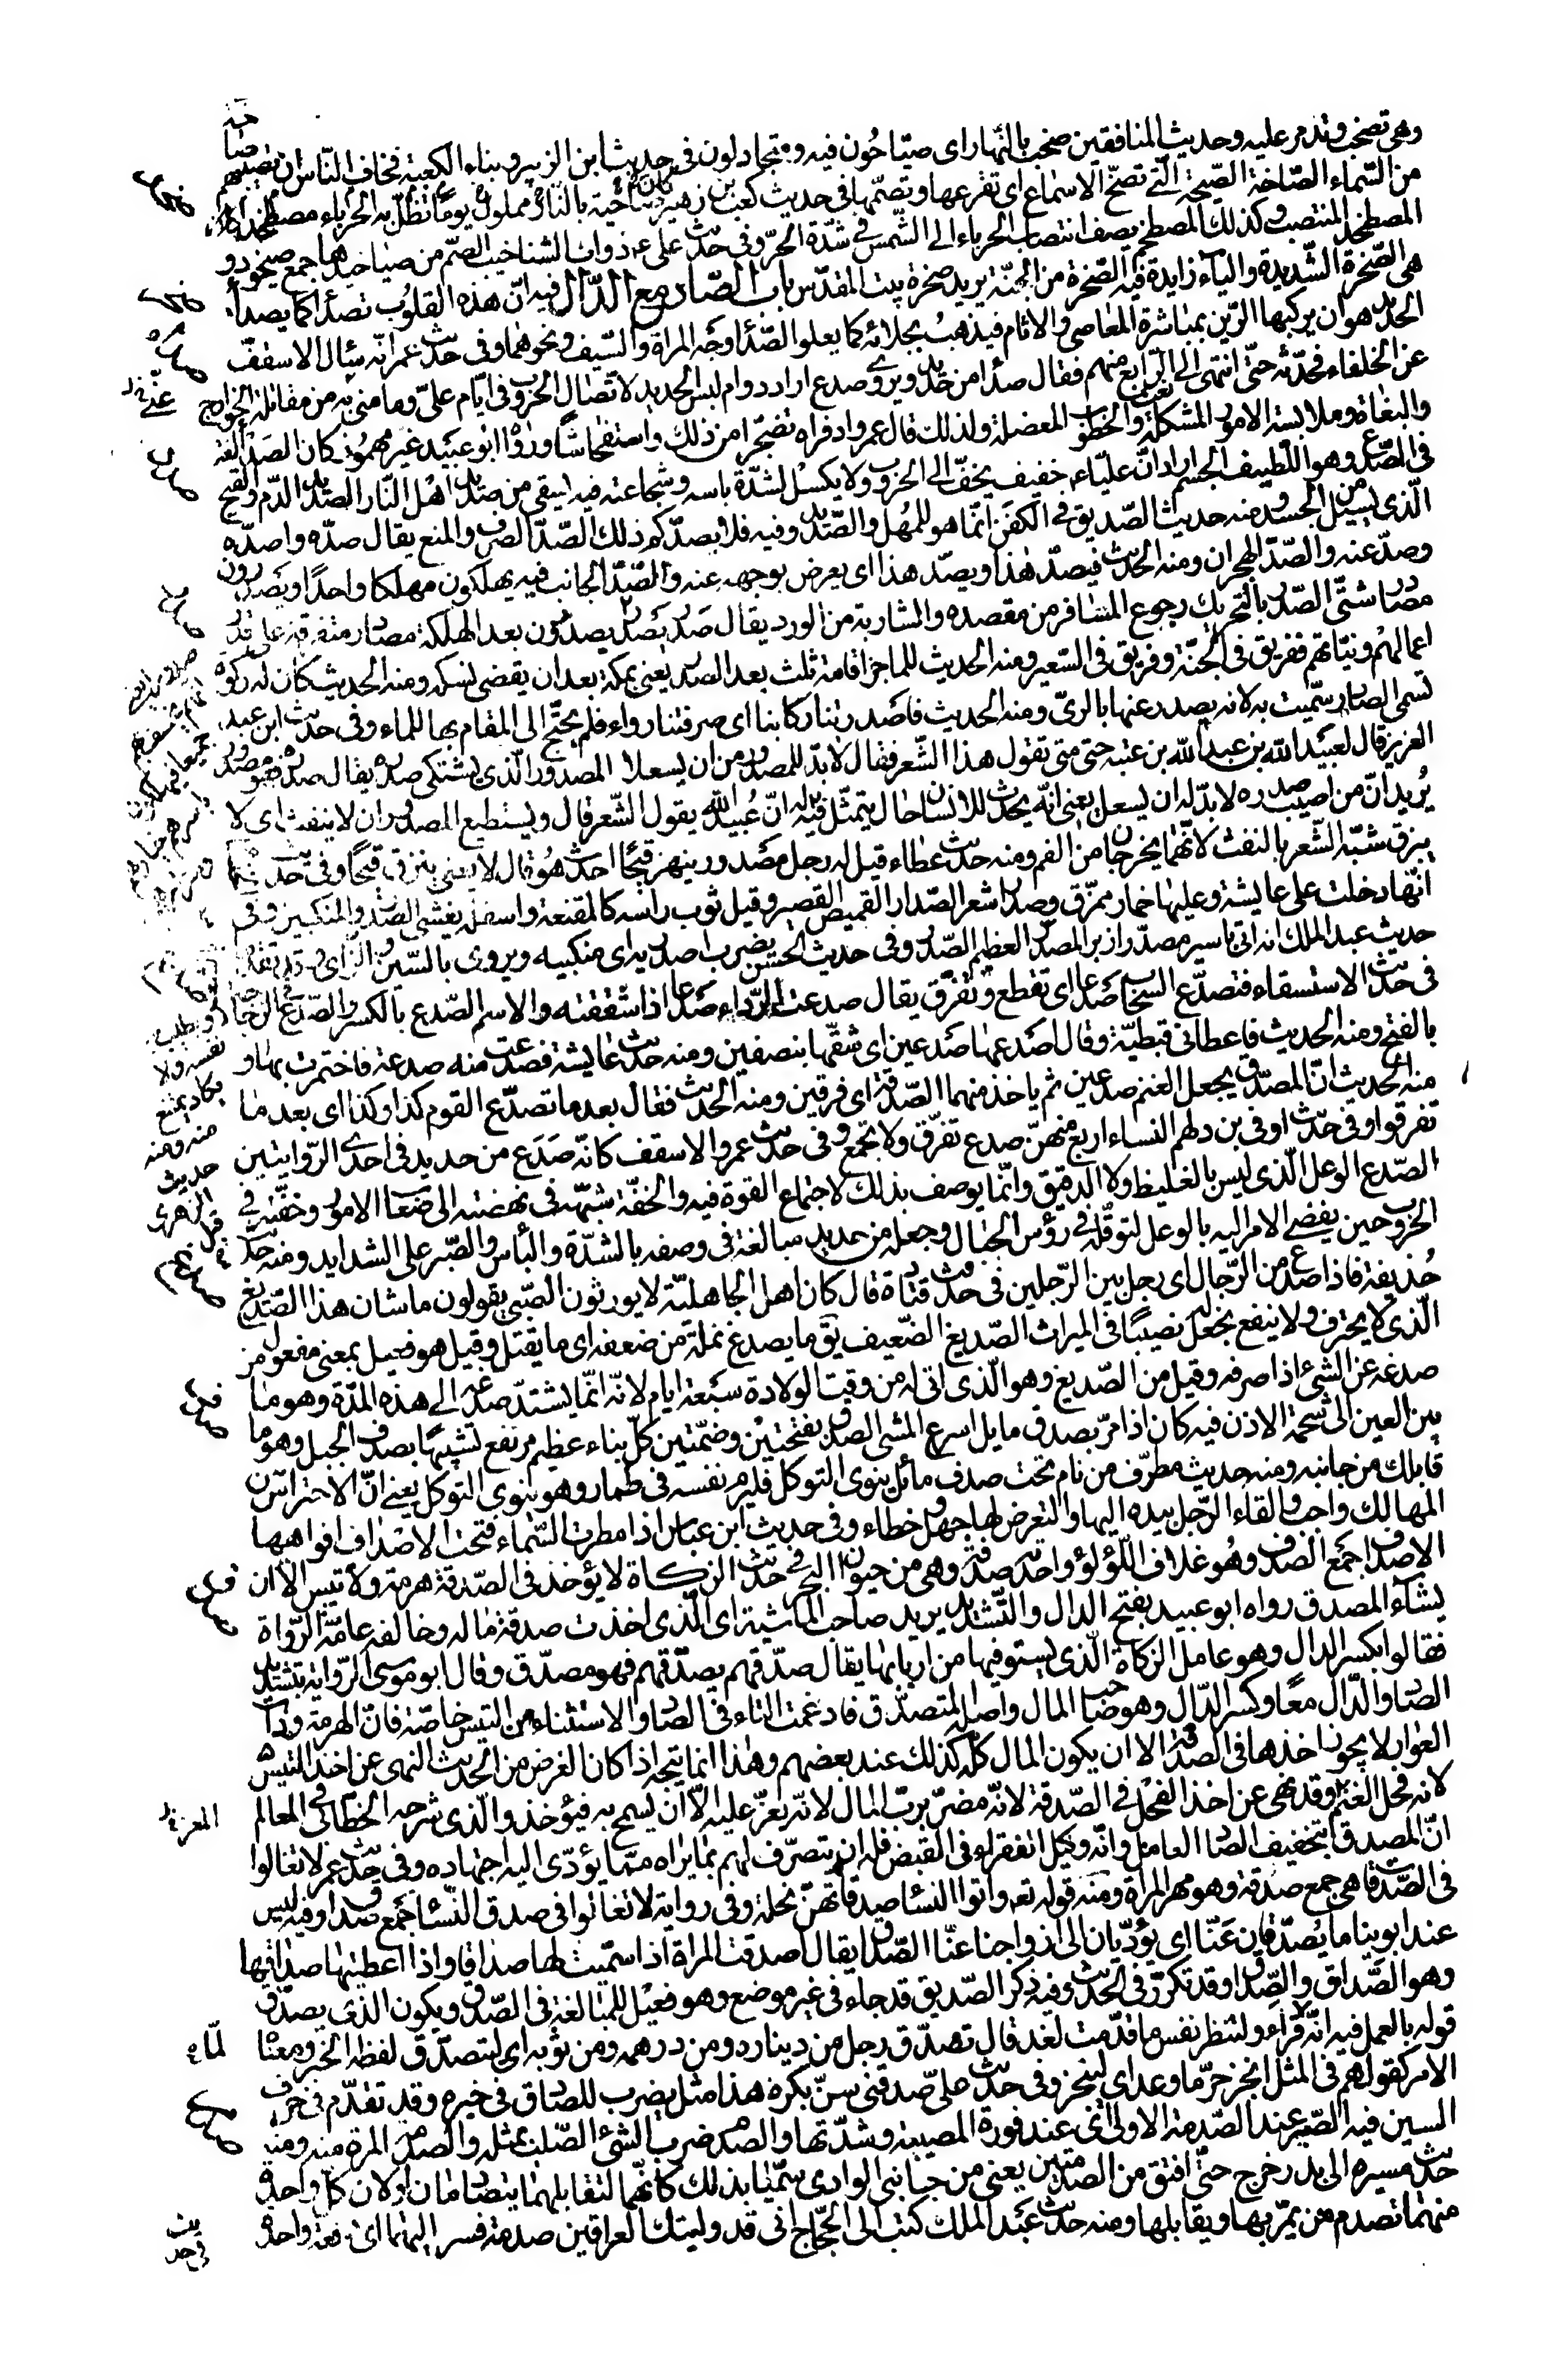 وهى تصخب وتذمر عليه وحديث المنافقين صخب بالنهار اى صياحون فيه ومتجادلون فى حديث ابن الزبير وبناء الكعبة فخاف الناس ان تصيبهم صاخة
من السماء الصاخة الصيحة التى تصخ الاسماع اى تقرعها وتصمها فى حديث كعب بن زهير يوما تظل به الحرباء مصطخدا كان ضاحيه بالنار مملول
المصطخد المنتصب وكذلك المصطخم يصف انتصاب الحرباء الى الشمس فى شدة الحر وفى حديث على ع ذوات الشناخيب الصم من صياخيدها جمع صيخود و
هى الصخرة الشديدة والياء زايدة فيه الصخرة من الجنة يريد صخرة بيت المقدس باب الصاد مع الدال فيه ان هذه القلوب تصدأ كما يصدأ
الحديد هو ان يركبها الرين بمباشرة المعاصى والاثام فيذهب بجلائه كما يعلو الصدأ وجه المراة والسيف ونحوهما وفى حديث عمر انه سال الاسقف
عن الخلفاء فحدثه حتى انتهى الى نعت الرابع منهم فقال صدأ من حديد ويروى صدع اراد دوام لبس الحديد لاتصال الحروب فى ايام على وما منى به من مقاتلة الخوارج
والبغاة وملابسة الامور المشكلة والخطوب المعضلة ولذلك قال عمر وادفراه تضجرا من ذلك واستفحاشا ورواه ابو عبيد غير مهموز كان الصدا لغة
فى الصدع وهو اللطيف الجسم اراد ان عليا ع خفيف يخف الى الحروب ولا يكسل لشدة باسه وشجاعته فيه يسقى من صديد اهل النار الصديد الدم والقيح
الذى يسيل من الجسد ومنه حديث الصديق فى الكفن انما هو للمهل والصديد وفيه فلا يصدنكم ذلك الصد الصرف والمنع يقال صده واصده
وصد عنه والصد الهجران ومنه الحديث فيصد هذا ويصد هذا اى يعرض بوجهه عنه والصد الجانب فيه يهلكون مهلكا واحدا ويصدرون
مصادر شتى الصدر بالتحريك رجوع المسافر من مقصده والشاربة من الورد يقال صدر يصدر يصدرون بعد الهلكة مصادر متفرقة على قدر
اعمالهم ونياتهم ففريق فى الجنة وفريق فى السعير ومنه الحديث للمهاجر اقامة ثلث بعد الصدر يعنى بمكة بعد ان يقضى نسكه ومنه الحديث كان له ركوة
تسمى الصادر سميت به لانه يصدر عنها بالرى ومنه الحديث فاصدرتنا ركابنا اى صرفتنا رواء فلم يحتج الى المقام بها للماء وفى حديث ابن عبد
العزيز قال لعبيد الله بن عبد الله بن عتبة حتى متى تقول هذا الشعر فقال لا بد للمصدور من ان يسعلا المصدور الذى يشتكى صدره يقال صدر فهو مصدور
يريد ان من اصيب صدره لا بد له ان يسعل يعنى انه يحدث للانسان حال يتمثل فيه قيل له ان عبيد الله يقول الشعر قال ويستطيع المصدور ان لا ينفث اى لا
يبزق شبه الشعر بالنفث لانهما يخرجان من الفم ومنه حديث عطاء قيل له رجل مصدور ينهز قيحا احدث هو قال لا يعنى يبزق قيحا وفى حديث
انها دخلت على عايشة وعليها خمار ممزق وصدار شعر الصدار القميص القصير وقيل ثوب راسه كالمقنعة واسفله يغشى الصدر والمنكبين وفى
حديث عبد الملك انه اتى باسير مصدر ازبر المصدر العظيم الصدر وفى حديث الحسن يضرب اصدريه اى منكبيه ويروى بالسين والزاى
فى حديث الاستسقاء فتصدع السحاب صدعا اى تقطع وتفرق يقال صدعت الرداء صدعا اذا شققته والاسم الصدع بالكسر والصدع فى الزجاجة
بالفتح ومنه الحديث فاعطانى قبطية وقال اصدعها صدعين اى شقها بنصفين ومنه حديث عايشة فصدعت منه صدعة فاختمرت بها و
منه الحديث ان المصدق يجعل الغنم صدعين ثم ياخذ منهما الصدقة اى فرقين ومنه الحديث فقال بعد ما تصدع القوم كذا وكذا اى بعد ما
تفرقوا وفى حديث اوفى بن دلهم النساء اربع منهن صدع تفرق ولا تجمع وفى حديث عمر والاسقف كانه صدع من حديد فى احدى الروايتين
الصدع الوعل الذى ليس بالغليظ ولا الدقيق وانما يوصف بذلك لاجتماع القوة فيه والخفة شبهه فى نهضته الى صعاب الامور وخفته فى
الحروب حين يفضى الامر اليه بالوعل لتوقله فى رؤس الجبال وجعله من حديد مبالغة فى وصفه بالشدة والباس والصبر على الشدايد ومنه حديث
حذيفة فاذا صدع من الرجال اى رجل بين الرجلين فى حديث قتادة قال كان اهل الجاهلية لا يورثون الصبى يقولون ما شان هذا الصديغ
الذى لا يحترف ولا ينفع نجعل له نصيبا فى الميراث الصديغ الضعيف يق ما يصدغ نملة من ضعفه اى ما يقتل وقيل هو فعيل بمعنى مفعول من
صدغه عن الشىء اذا صرفه وقيل من الصديغ وهو الذى اتى له من وقت الولادة سبعة ايام لانه انما يشتد صدغه الى هذه المدة وهو ما
بين العين الى شحمة الاذن فيه كان اذا مر بصدف مايل اسرع المشى الصدف بفتحتين وضمتين كل بناء عظيم مرتفع تشبيها بصدف الجبل وهو ما
قابلك من جانبه ومنه حديث مطرف من نام تحت صدف مائل ينوى التوكل فليرم نفسه فى طمار وهو ينوى التوكل يعنى ان الاحتراس من
المهالك واجب والقاء الرجل بيده اليها والتعرض لها جهل وخطاء وفى حديث ابن عباس اذا مطرت السماء فتحت الاصداف افواهها
الاصداف جمع الصدف وهو غلاف اللؤلؤ واحدته صدفة وهى من حيوان البحر فى حديث الزكاة لا يؤخذ فى الصدقة هرمة ولا تيس الا ان
يشاء المصدق رواه ابو عبيد بفتح الدال والتشديد يريد صاحب الماشية اى الذى اخذت صدقة ماله وخالفه عامة الرواة
فقالوا بكسر الدال وهو عامل الزكاة الذى يستوفيها من اربابها يقال صدقهم يصدقهم فهو مصدق وقال ابو موسى الرواية بتشديد
الصاد والدال معا وكسر الدال وهو صاحب المال واصله المتصدق فادغمت التاء فى الصاد والاستثناء من التيس خاصة فان الهرمة وذات
العوار لا يجوز اخذها فى الصدقة الا ان يكون المال كله كذلك عند بعضهم وهذا انما يتجه اذا كان الغرض من الحديث النهى عن اخذ التيس
لانه فحل الغنم وقد نهى عن اخذ الفحل فى الصدقة لانه مضر برب المال لانه يعز عليه الا ان يسمح به فيؤخذ والذى شرحه الخطابى فى المعالم
ان المصدق بتخفيف الصاد العامل وانه وكيل الفقراء فى القبض فله ان يتصرف لهم بما يراه مما يؤدى اليه اجتهاده وفى حديث عمر لا تغالوا
فى الصدقات هى جمع صدقة وهو مهر المراة ومنه قوله تعه واتوا النسا صدقاتهن نحلة وفى رواية لا تغالوا فى صدق النسا جمع صداق وفيه ليس
عند ابوينا ما يصدقان عنا اى يؤديان الى ازواجنا عنا الصداق يقال اصدقت المراة اذا سميت لها صداقا واذا اعطيتها صداقها
وهو الصداق والصداق وقد تكرر فى الحديث وفيه ذكر الصديق قد جاء فى غير موضع وهو فعيل للمبالغة فى الصدق ويكون الذى يصدق
قوله بالعمل فيه انه قراء ولتنظر نفس ما قدمت لغد قال تصدق رجل من ديناره ومن درهمه ومن ثوبه اى ليتصدق لفظه الخبر ومعناه
الامر كقولهم فى المثل انجز حر ما وعد اى لينجز وفى حديث على صدقنى سن بكره هذا مثل يضرب للصادق فى خبره وقد تقدم فى حرف
السين فيه الصبر عند الصدمة الاولى اى عند فورة المصيبة وشدتها والصدم ضرب الشىء الصلب بمثله والصدمة المرة منه ومنه
حديث مسيره الى بدر خرج حتى افتق من الصدمتين يعنى من جانبى الوادى سميا بذلك كانهما لتقابلهما يتصادمان او لان كل واحدة
منهما تصدم من يمر بها ويقابلها ومنه حديث عبد الملك كتب الى الحجاج انى قد وليتك العراقين صدمة فسر اليهما اى دفعة واحدة